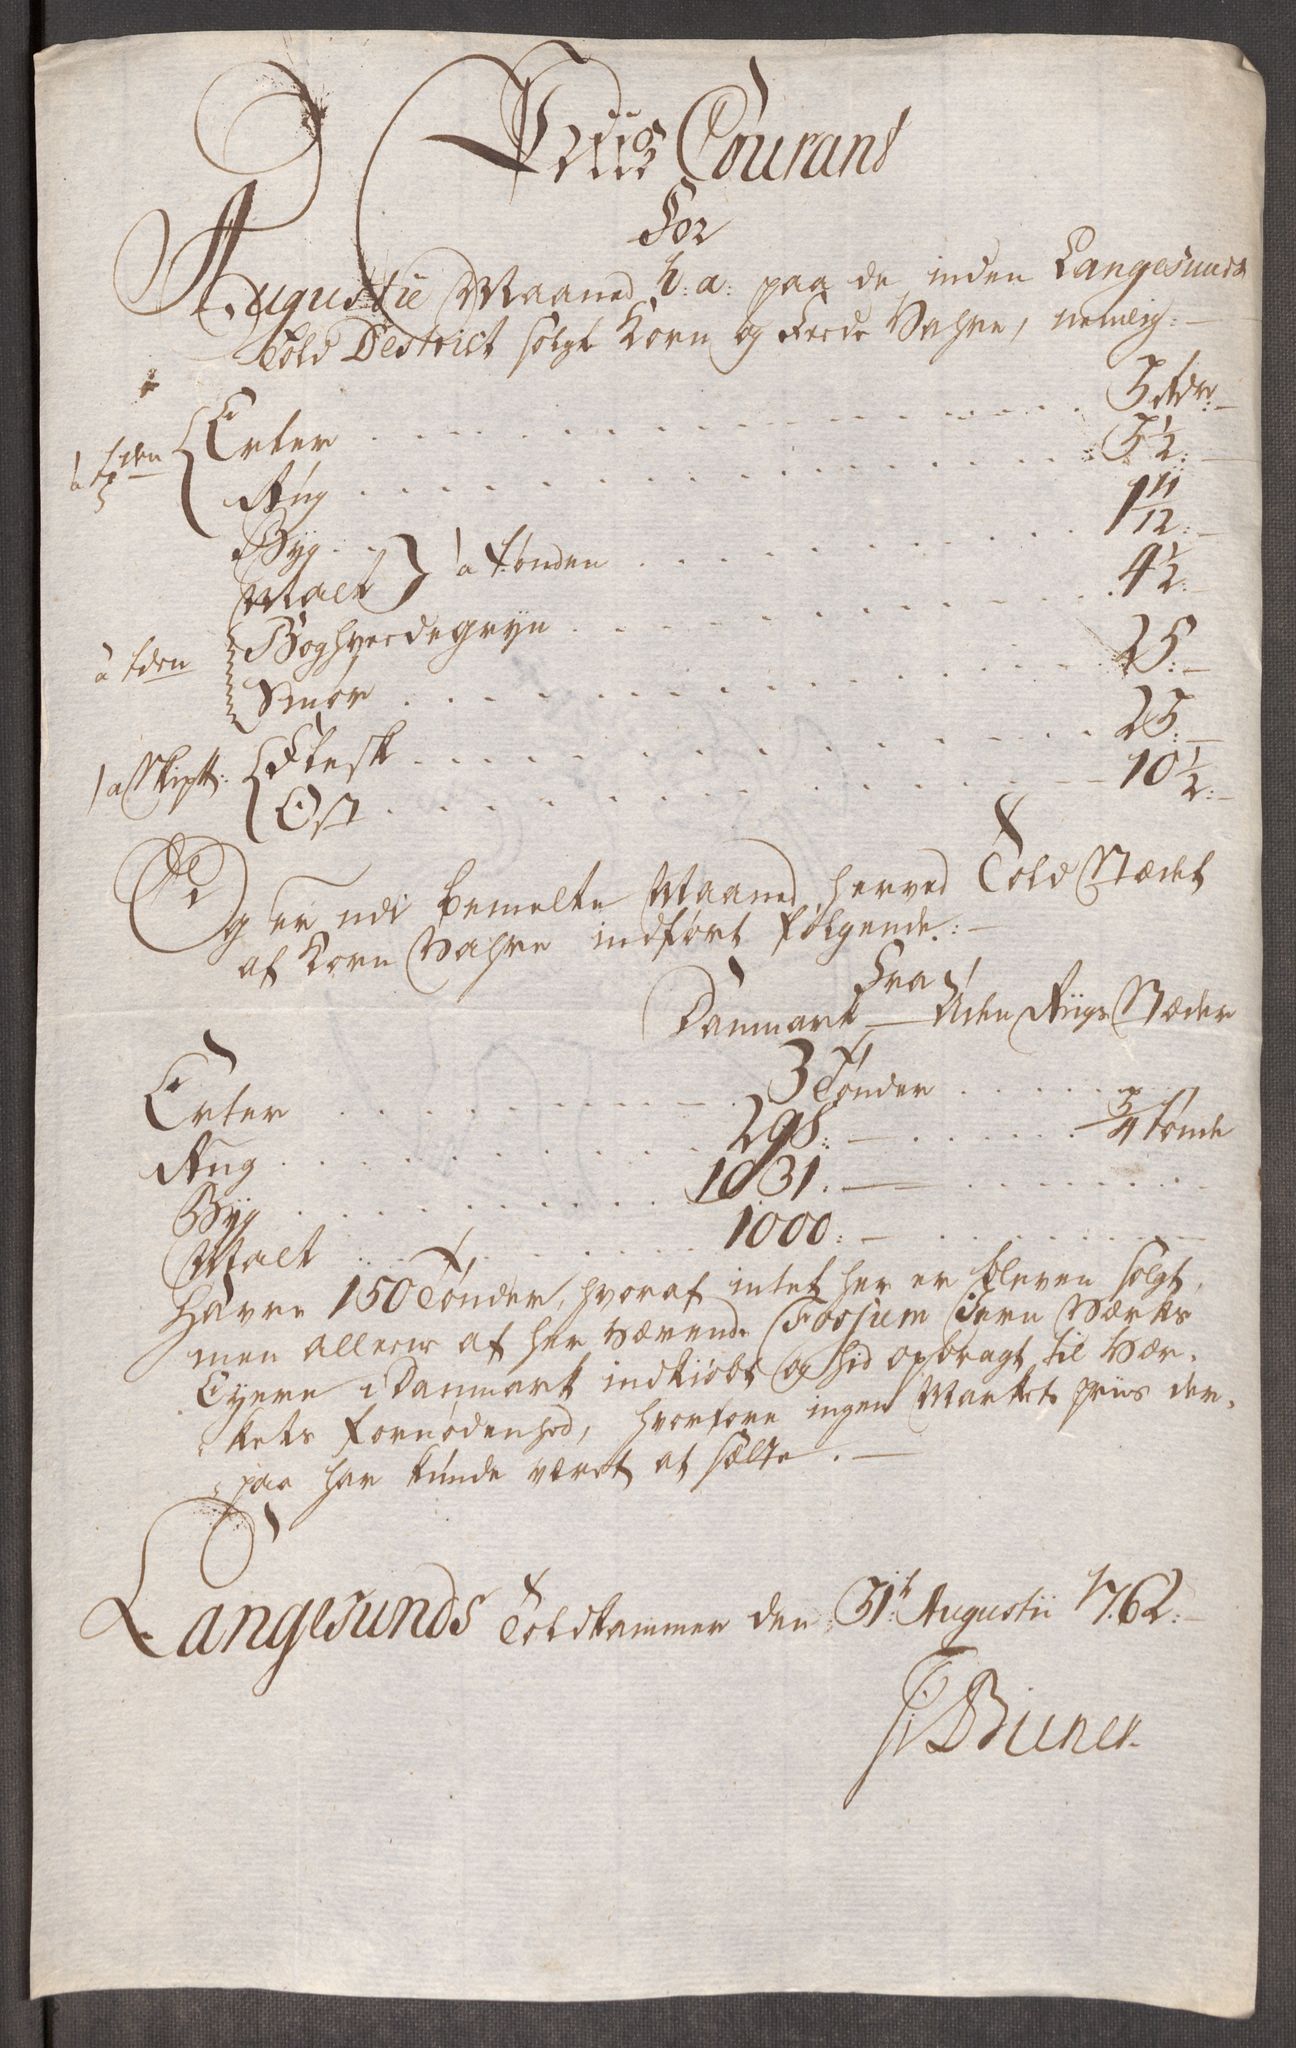 Priis Courant
For
Augustii Maaned h: a: paa de inden Langesunds
Told District solgt Korn og Feede Vahre, nemlig:
à tden { Erter . . . 5 rdr:
Rug . . . 3½:
Byg
Malt } à tønden . . . 1 11/12:
à tden { Boghvedegryn . . . 4½:
Smør . . . 25:
à Skip℔: { Flesk . . . 25:
Ost . . . 10½:
Og er udi bemelte Maaned herved Told Stædet
af Korn Vahre indført følgende:
Fra
Danmark — Uden Riigs Stæder
Erter . . . 3 Tønder . . .
Rug . . . 298: — . . . ¾ tønde
Byg . . . 1031. — . . .
Malt . . . 1000: — . . .
Havre 150 Tønder, hvoraf intet her er bleven solgt,
men allene af her værende Fossum Jern Værks
Eyere i Danmark indkiøbt og hid opbragt til Vær-
kets fornødenhed, hvorfore ingen Markets priis der-
paa har kunde været at sætte.
Langesunds Toldkammer den 31t Augustii 1762: